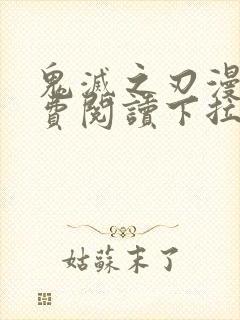 鬼滅之刃漫
費閱讀下拉
姑蘇末了